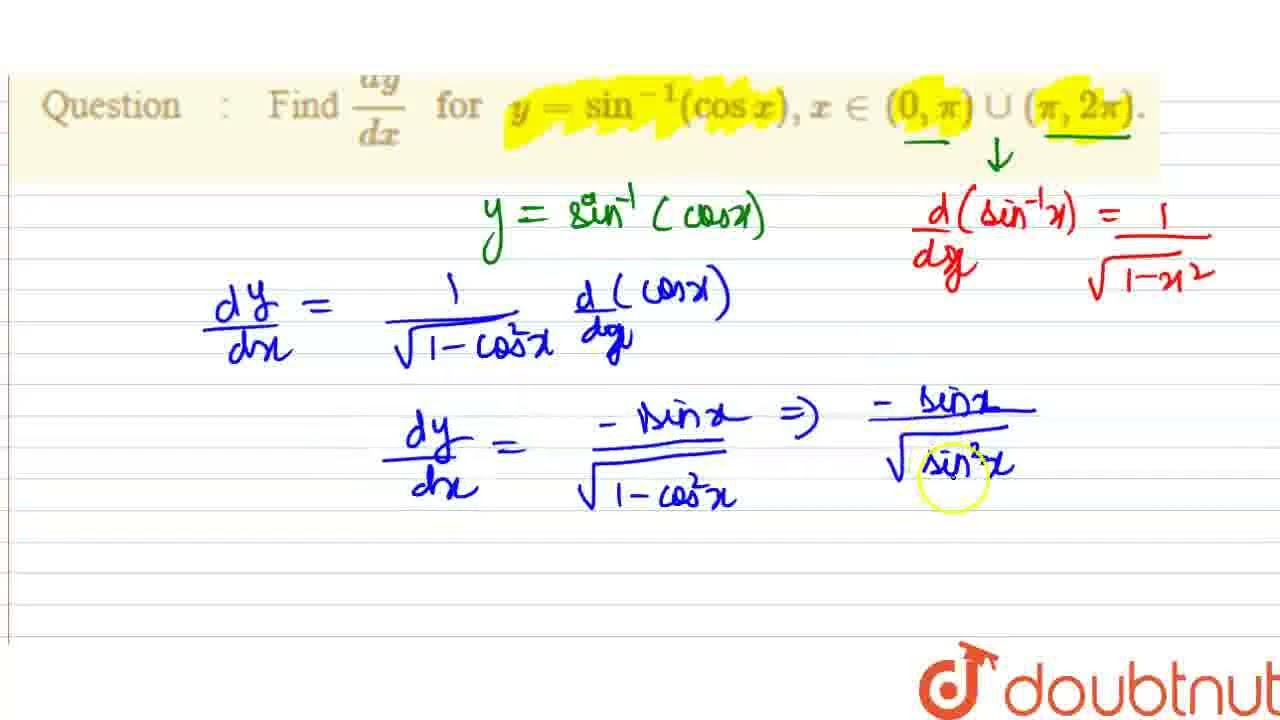 Question : Find dy/dx for y = sin⁻¹(cos x), x ∈ (0, π) ∪ (π, 2π).
y = sin⁻¹ (cosx)
d/dx (sin⁻¹x) = 1/√(1-x²)
dy/dx = 1/√(1-cos²x) d/dx (cosx)
dy/dx = -sinx/√(1-cos²x) ⇒ -sinx/√(sin²x)
doubtnut